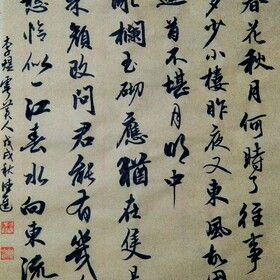 春花秋月何時了往事
多少小樓昨夜又東風故國
不堪回首月明中
雕欄玉砌應猶在只是
朱顏改問君能有幾
愁恰似一江春水向東流
李煜虞美人戊戌秋